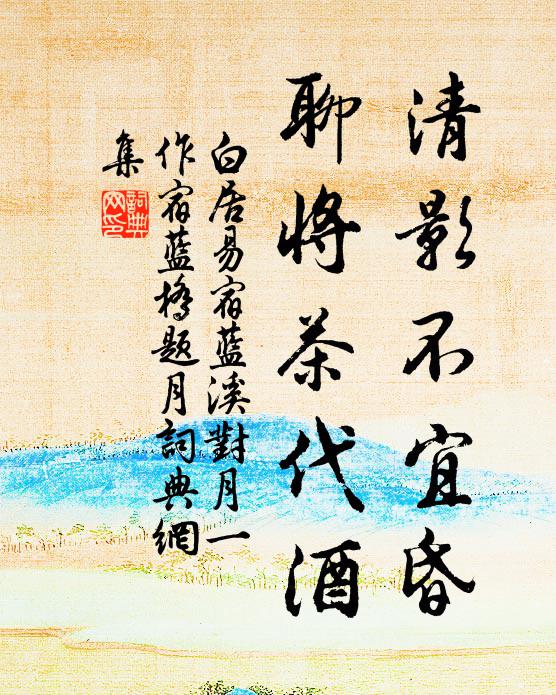 清影不宜昏
聊將茶代酒
白居易宿藍溪對月一
作宿藍橋題月詞典網
集
詞典
网印